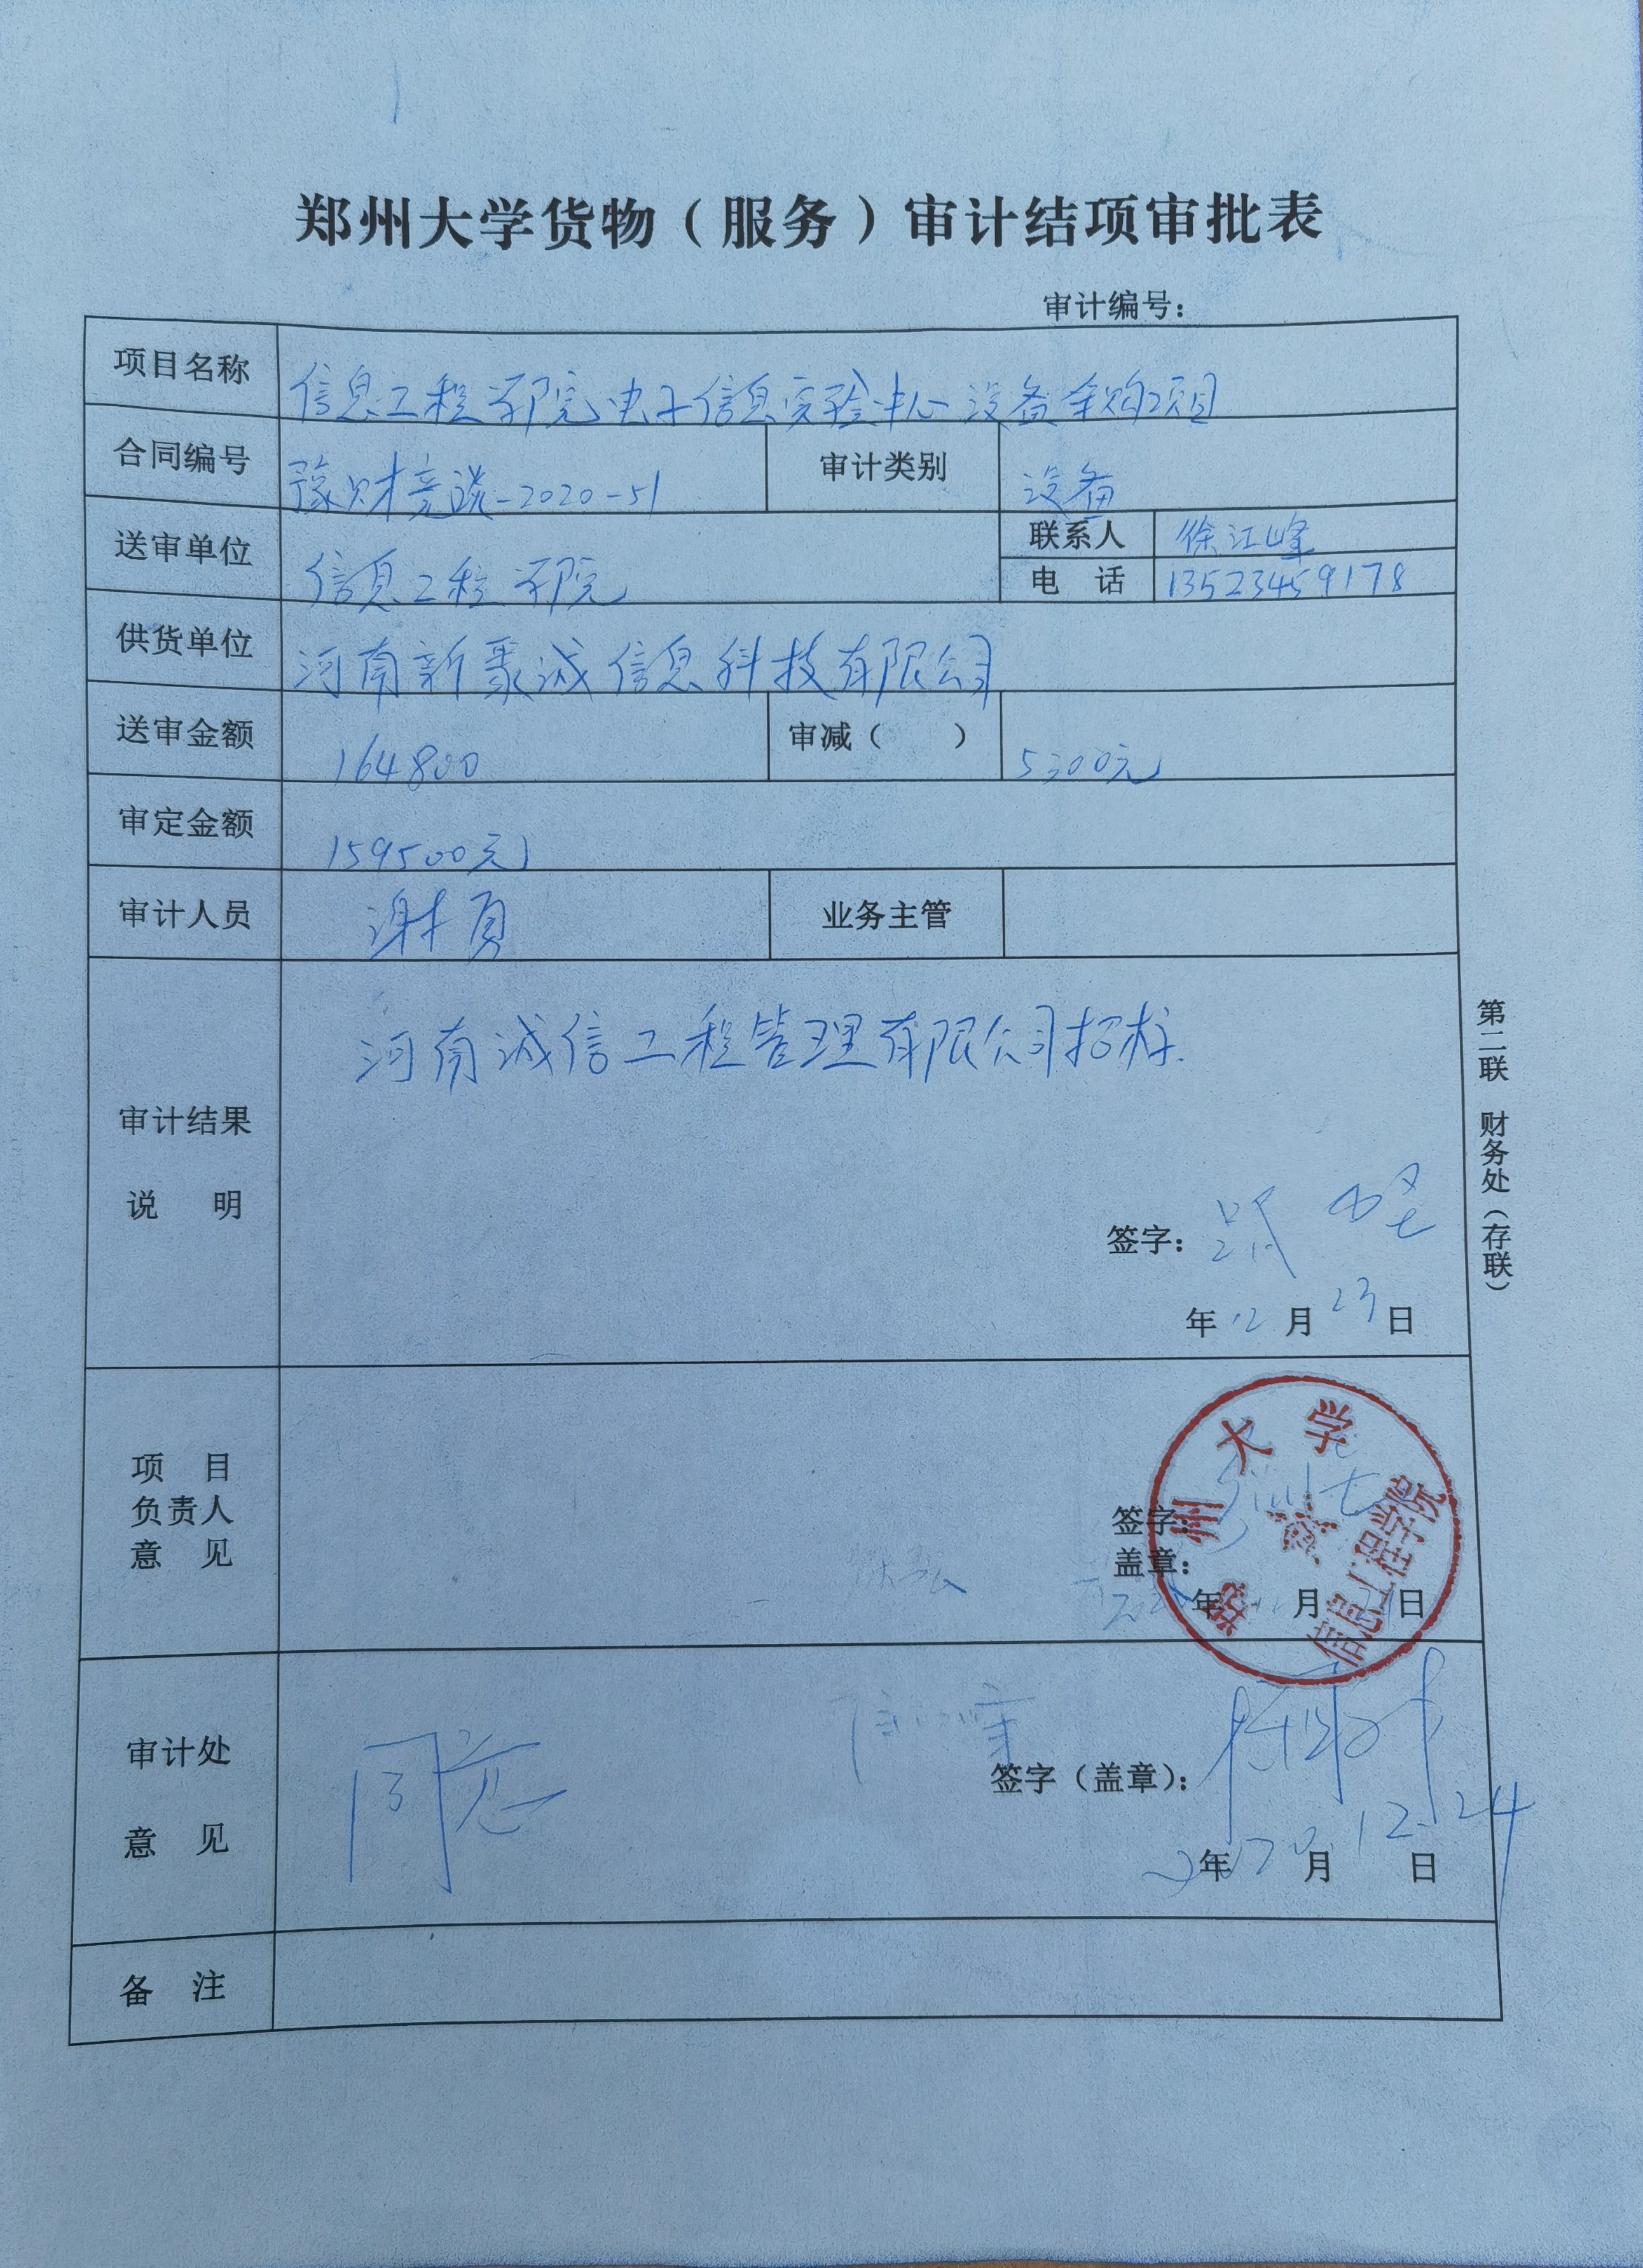 郑州大学货物（服务）审计结项审批表
审计编号：
项目名称 信息工程学院电子信息实验中心设备采购项目
合同编号 豫财竞谈-2020-51 审计类别 设备
送审单位 信息工程学院 联系人 徐江峰
电 话 13523459178
供货单位 河南新聚诚信息科技有限公司
送审金额 164800 审减（ ） 5300元
审定金额 159500元
审计人员 谢夏 业务主管
河南诚信工程管理有限公司招标.
审计结果
说 明
签字：
年 12 月 23 日
项 目
负责人
意 见
签字：
盖章：
年 月 日
郑州大学
信息工程学院
审计处
意 见
同意
签字（盖章）：
年 月 日
12.24
备 注
第二联 财务处（存联）